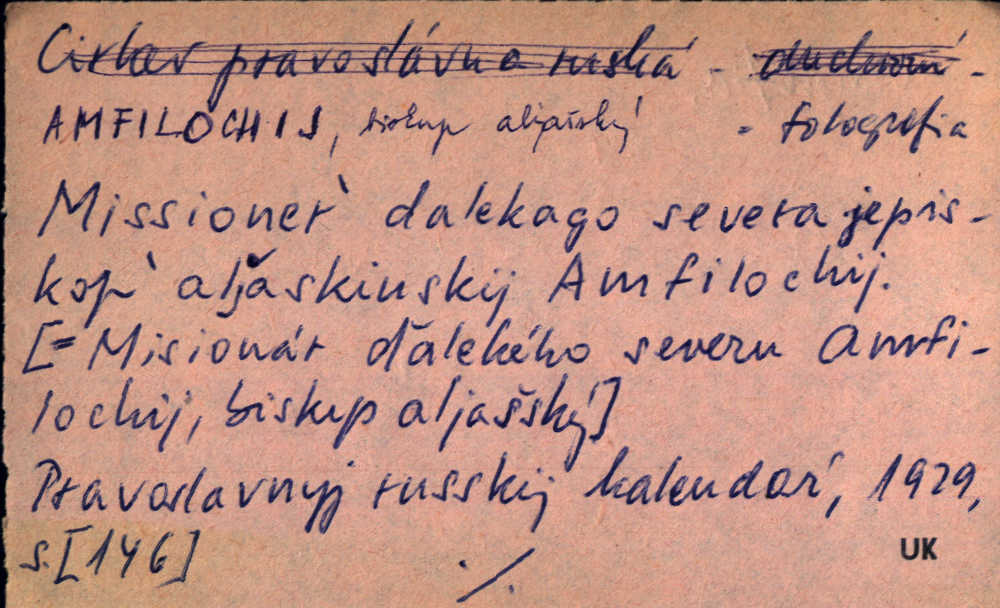 Cirkev pravoslávna ruská - duchovní -
AMFILOCHIJ, biskup aljašský - fotografia
Missioner` dalekago severa jepis-
kop` aljaskinskij Amfilochij.
[= Misionár ďalekého severu Amfi-
lochij, biskup aljašský]
Pravoslavnyj russkij kalendar', 1929,
s. [146]
./.
UK